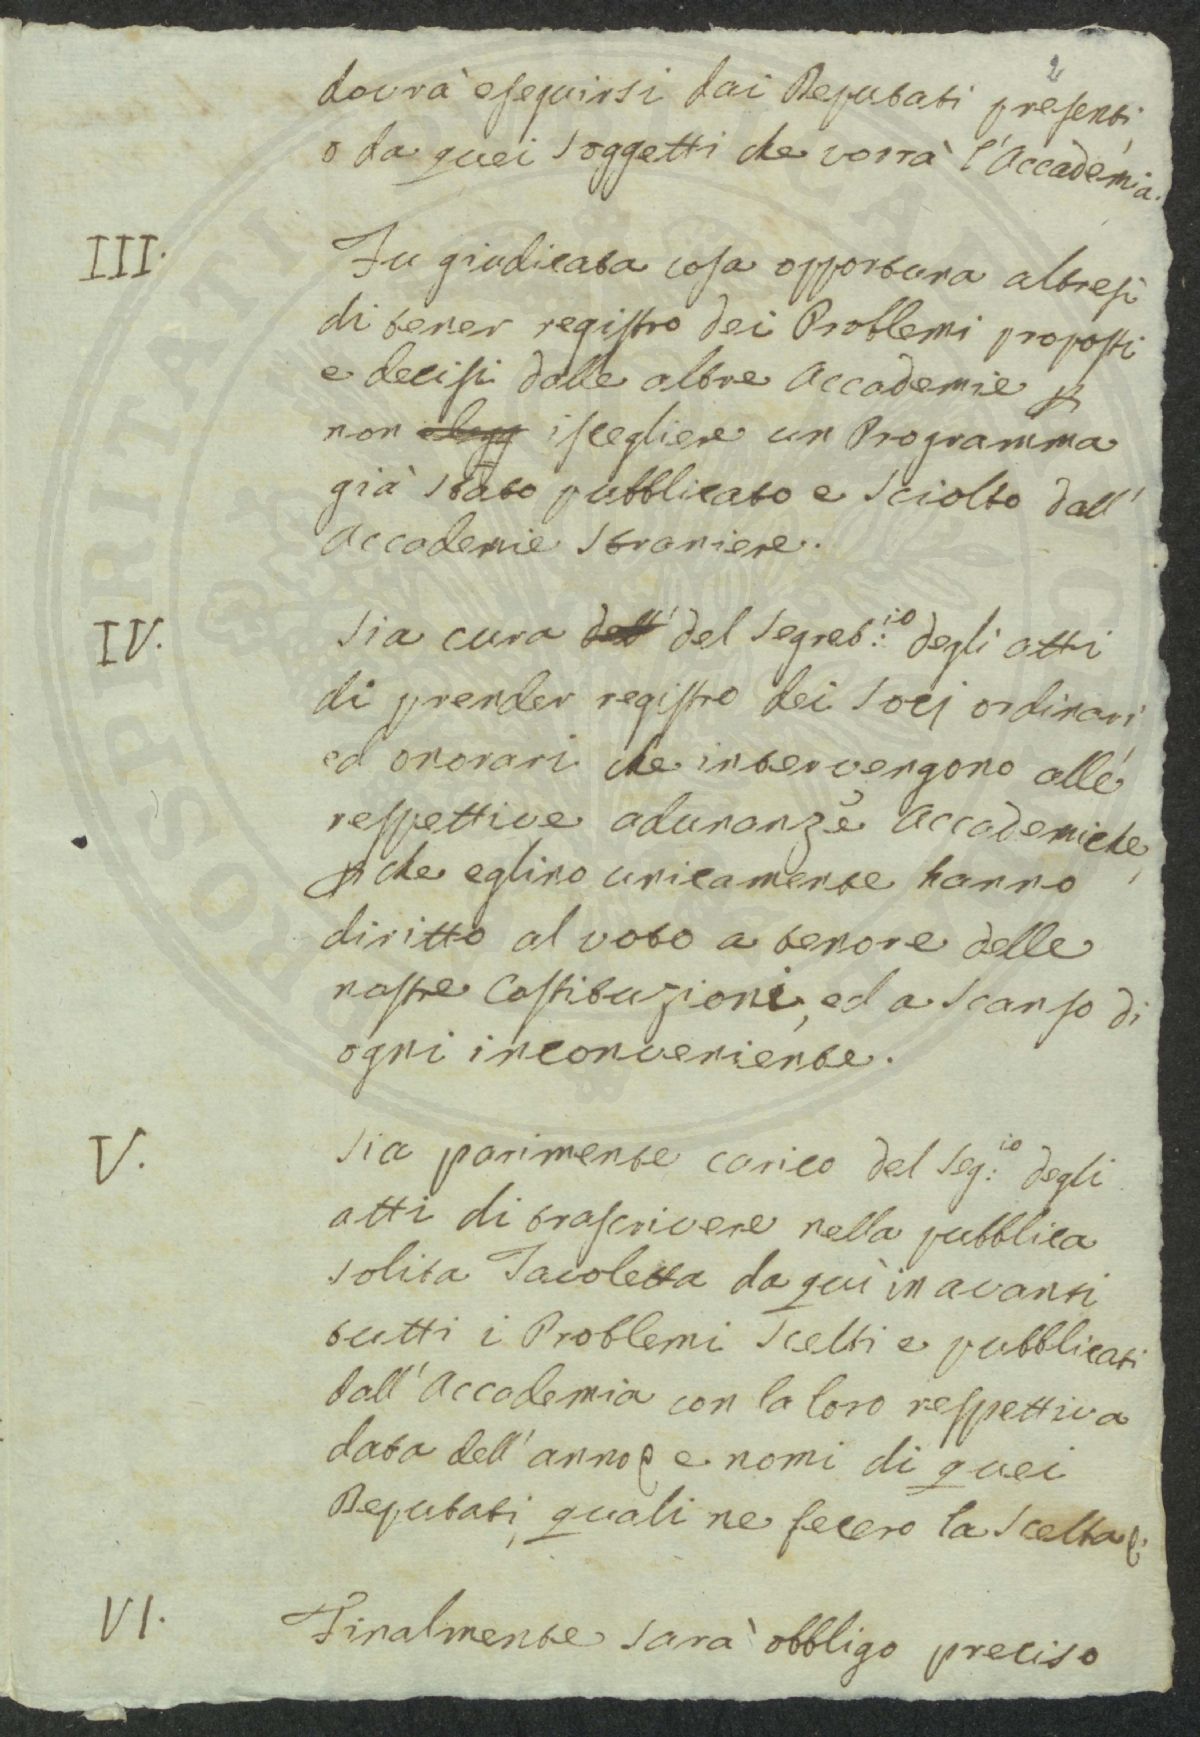 2
dovrà eseguirsi dai Deputati presenti
o da quei soggetti che vorrà l'Accademia.
III. Fu giudicata cosa opportuna altresì
di tener registro dei Problemi proposti
e decisi dalle altre Accademie p
non elegg iscegliere un Programma
già stato pubblicato e sciolto dall'
Accademie straniere.
IV. Sia cura dell' del Segret:io degli atti
di prender registro dei Socj ordinari
ed onorari che intervengono alle
respettive adunanze Accademiche,
pche eglino unicamente hanno
diritto al voto a tenore delle
nostre Costituzioni, ed a scanso di
ogni inconveniente.
V. Sia parimente carico del Seg:io degli
atti di trascrivere nella pubblica
solita Tavoletta da quì in avanti
tutti i Problemi scelti e pubblicati
dall'Accademia con la loro respettiva
data dell'anno, e nomi di quei
Deputati, quali ne fecero la scelta.
VI. Finalmente sarà obbligo preciso
PROSPERITATI